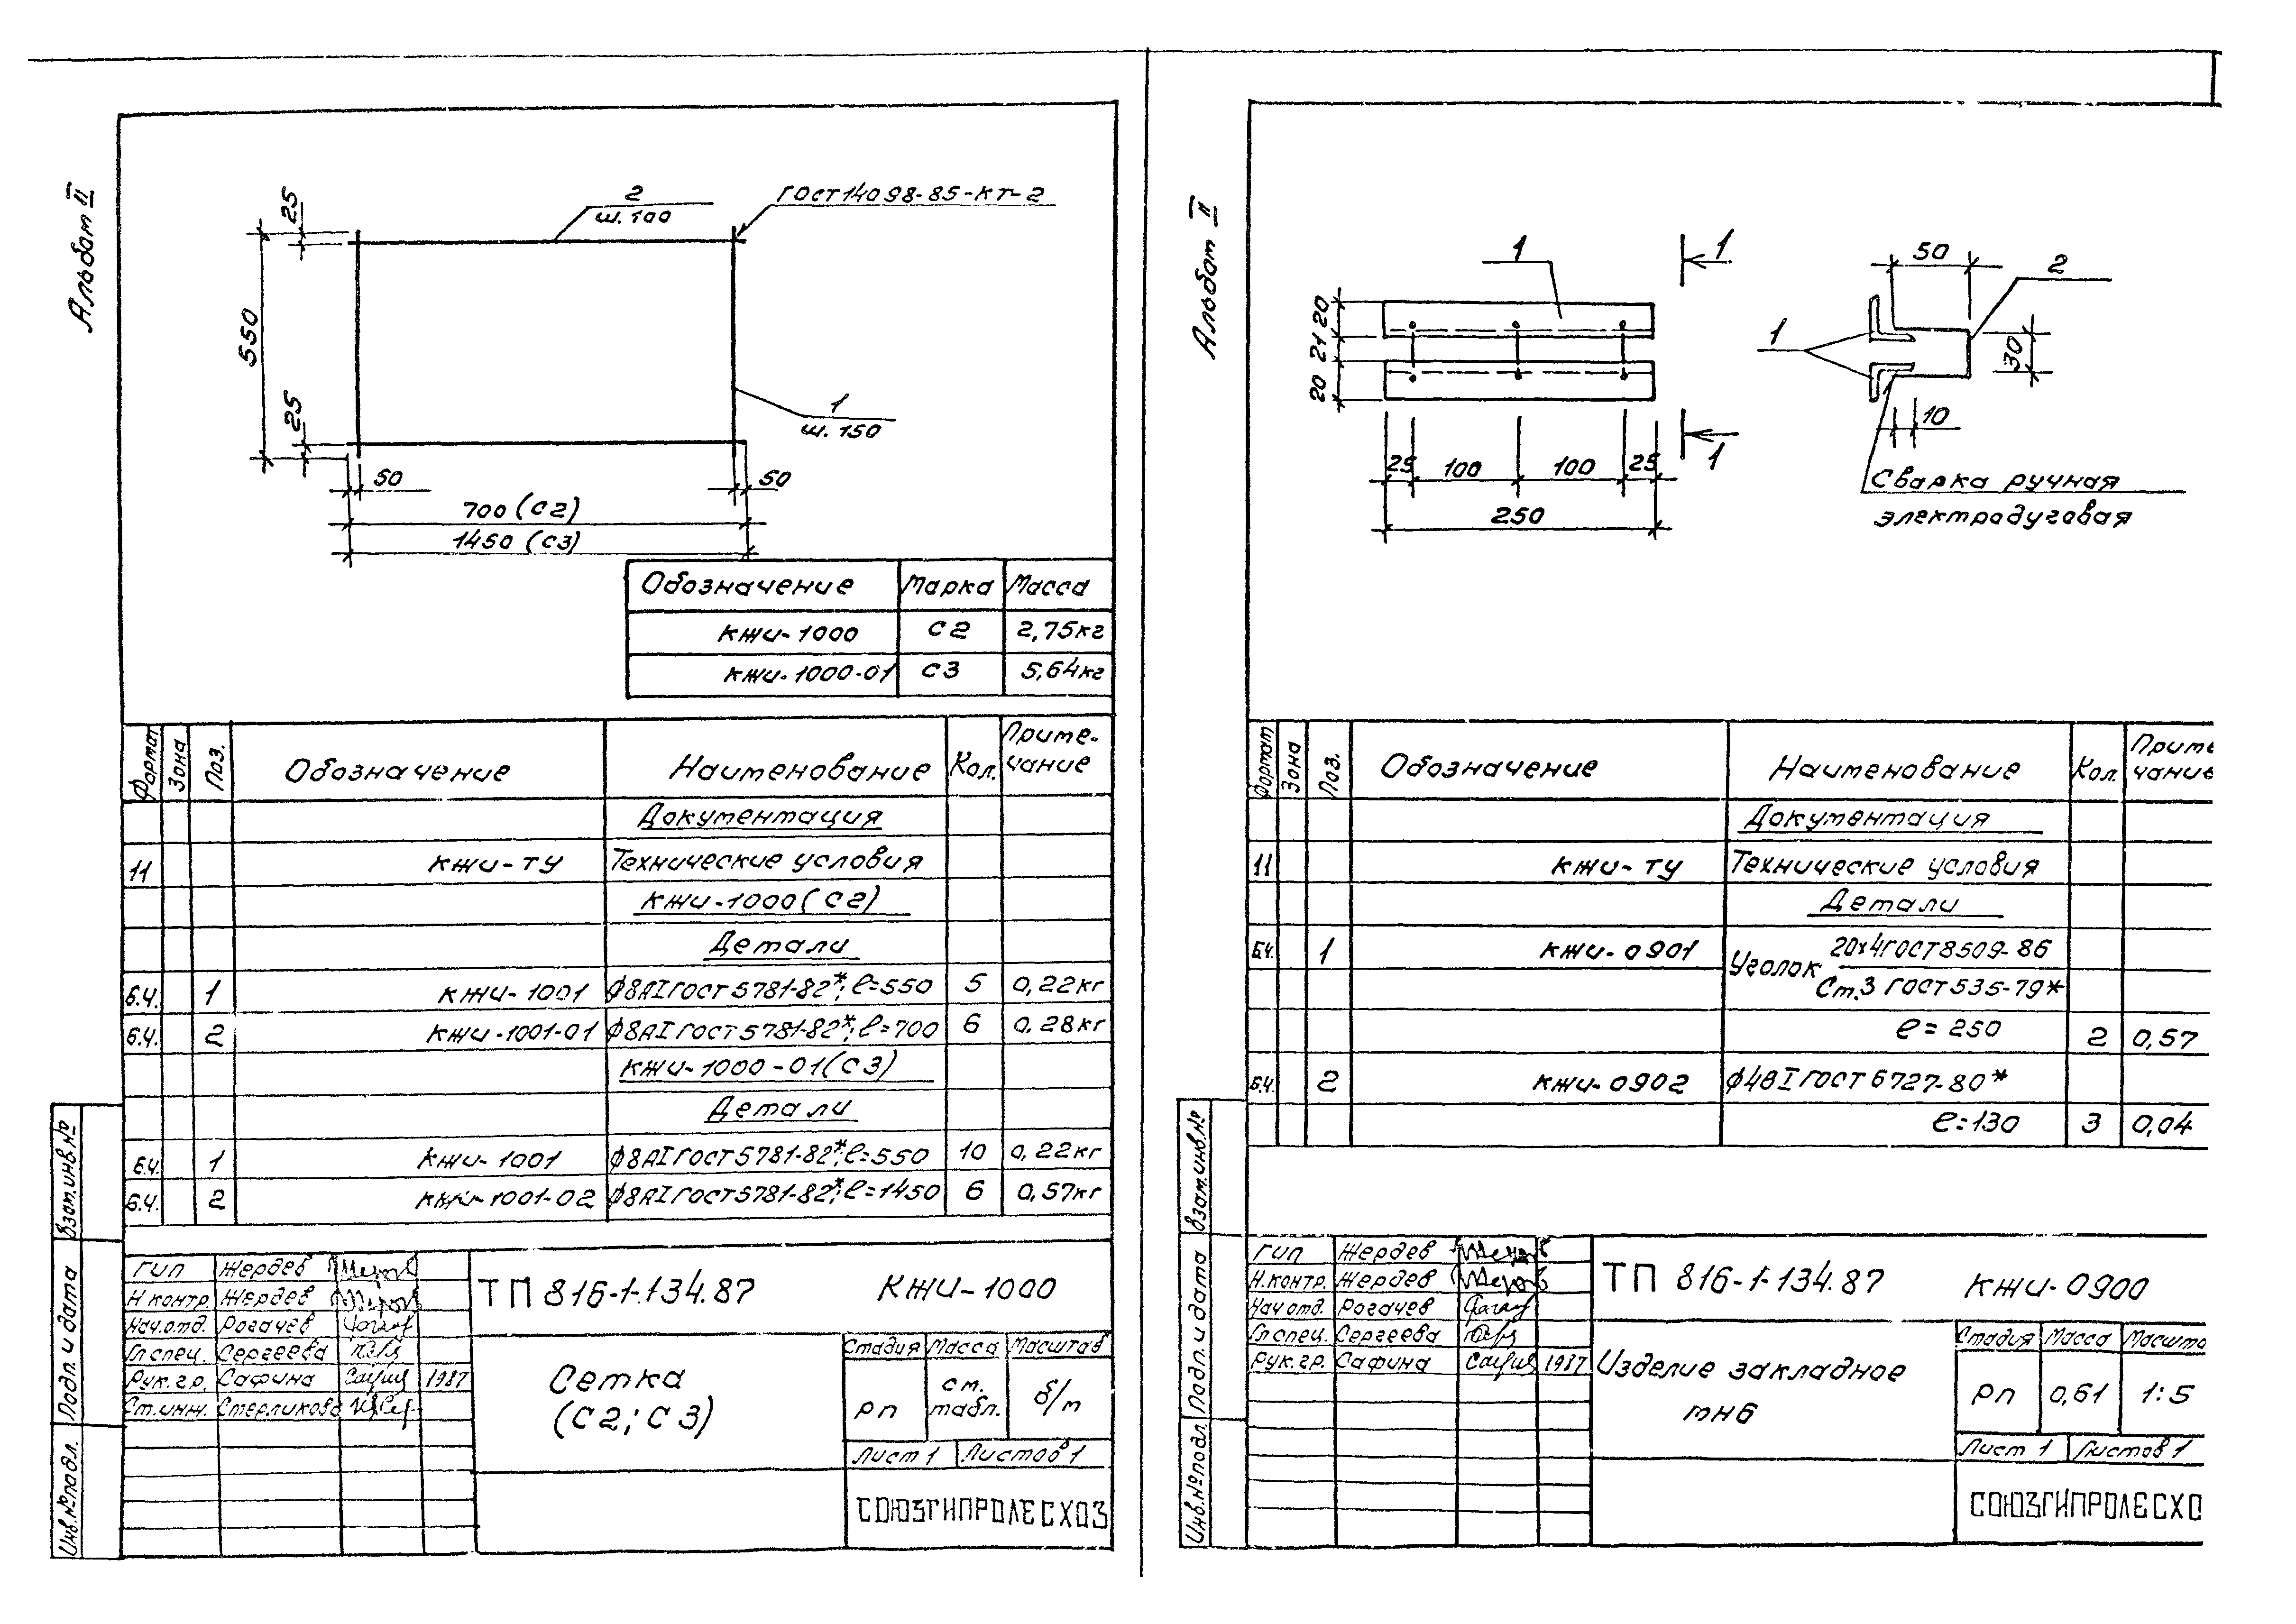 Альбом II
25
550
25
2
ш. 100
ГОСТ 14098-85-КТ-2
1
ш. 150
50
50
700 (С2)
1450 (С3)
Обозначение Марка Масса
КЖИ-1000 С2 2,75кг
КЖИ-1000-01 С3 5,64кг
Формат Зона Поз. Обозначение Наименование Кол. Приме-
чание
Документация
11 КЖИ-ТУ Технические условия
КЖИ-1000(С2)
Детали
Б.Ч. 1 КЖИ-1001 ф8АI ГОСТ 5781-82*; ℓ=550 5 0,22кг
Б.Ч. 2 КЖИ-1001-01 ф8АI ГОСТ 5781-82*; ℓ=700 6 0,28кг
КЖИ-1000-01(С3)
Детали
Б.Ч. 1 КЖИ-1001 ф8АI ГОСТ 5781-82*; ℓ=550 10 0,22кг
Б.Ч. 2 КЖИ-1001-02 ф8АI ГОСТ 5781-82*; ℓ=1450 6 0,57кг
Взам.инв.№
Подп. и дата
Инв.№подл.
ГИП Жердев
Н контр. Жердев
Нач.отд. Рогачев
Гл спец. Сергеева
Рук.гр. Сафина 1987
Ст.инж. Стерликова
ТП 816-1-134.87 КЖИ-1000
Сетка
(С2; С3)
Стадия Масса Масштаб
РП см.
табл. б/м
Лист 1 Листов 1
СОЮЗГИПРОЛЕСХОЗ
Альбом II
1
1
1
20
21
20
25 100 100 25
250
50
2
1
30
10
Сварка ручная
электродуговая
Формат Зона Поз. Обозначение Наименование Кол. Приме
чание
Документация
11 КЖИ-ТУ Технические условия
Детали
Б.Ч. 1 КЖИ-0901 Уголок 20х4 ГОСТ 8509-86
Ст.3 ГОСТ 535-79*
ℓ= 250 2 0,57
Б.Ч. 2 КЖИ-0902 ф4ВI ГОСТ 6727-80*
ℓ=130 3 0,04
Взам.инв.№
Подп. и дата
Инв.№подл.
ГИП Жердев
Н.контр. Жердев
Нач отд. Рогачев
Гл спец. Сергеева
Рук.гр. Сафина 1987
ТП 816-1-134.87 КЖИ-0900
Изделие закладное
МН6
Стадия Масса Масшта
РП 0,61 1:5
Лист 1 Листов 1
СОЮЗГИПРОЛЕСХО